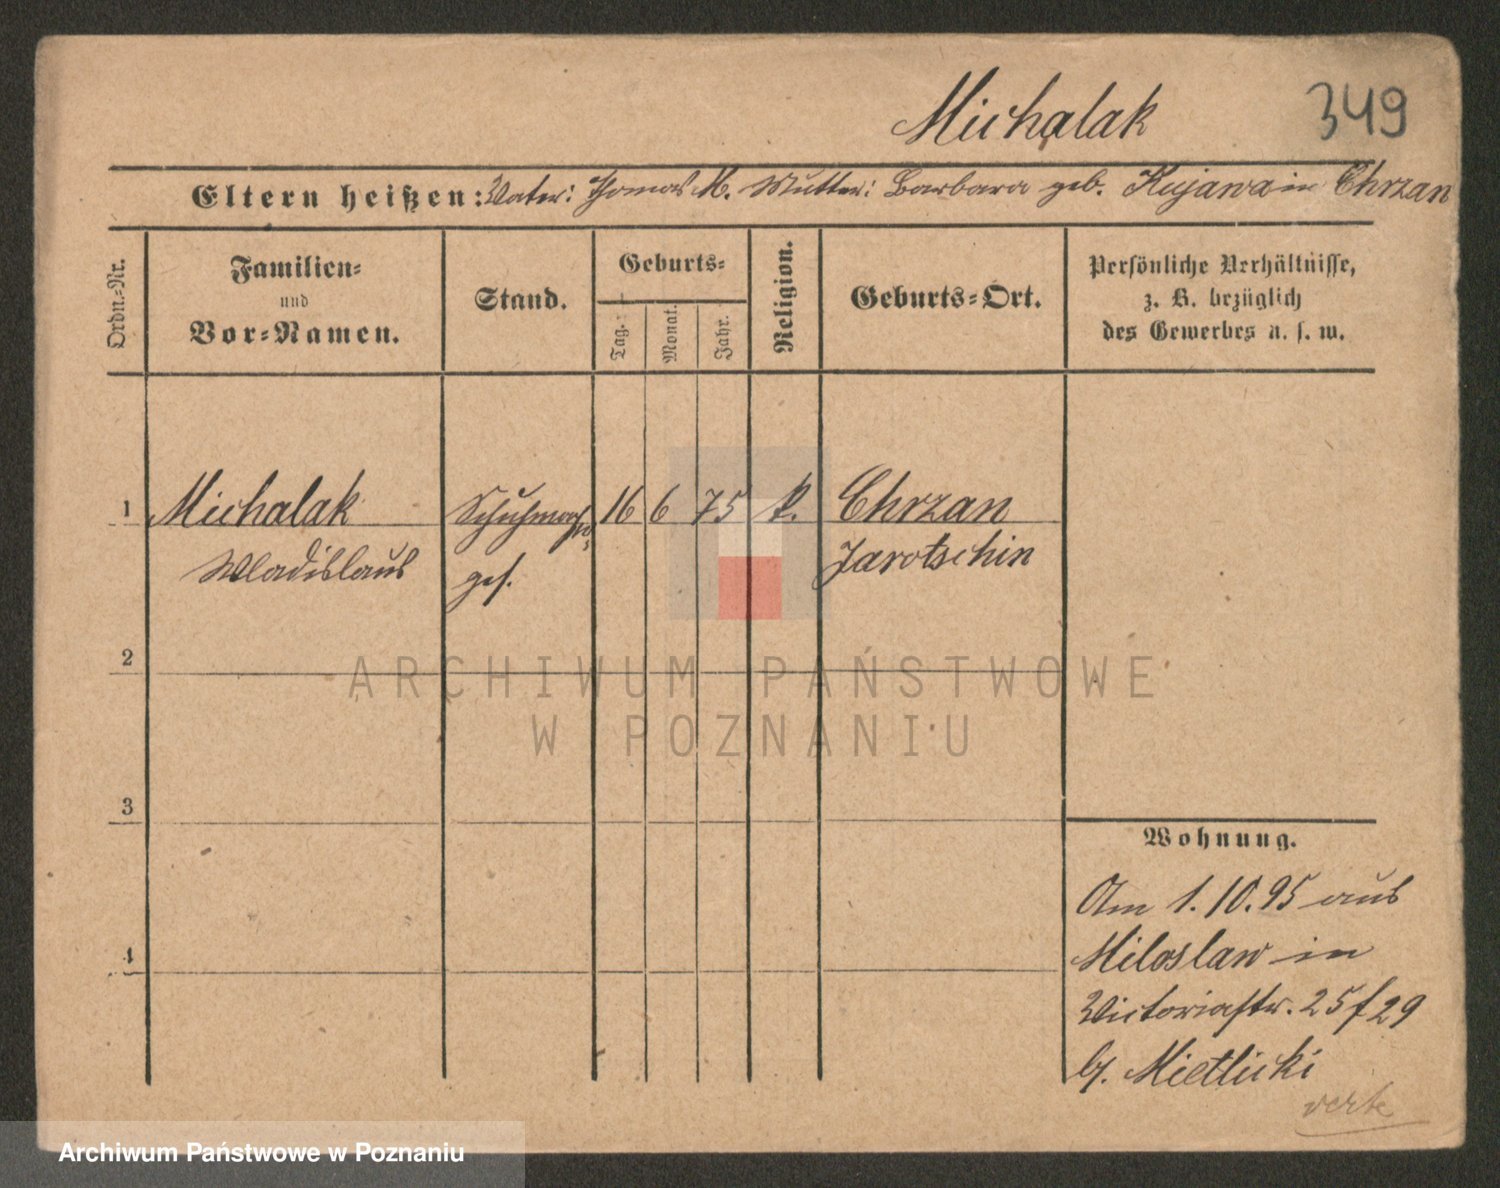 Michalak
349
Eltern heißen: Vater: Thomas M. Mutter: Barbara geb. Kujawa in Chrzan
Ordn.-Nr.
Familien-
und
Vor-Namen.
Stand.
Geburts-
Tag.
Monat.
Jahr.
Religion.
Geburts-Ort.
Persönliche Verhältnisse,
z. B. bezüglich
des Gewerbes u. s. w.
1 Michalak Schuhmach 16 6 75 k. Chrzan
Wladislaus ges. Jarotschin
2
3
4
Wohnung.
Am 1.10.95 aus
Miloslaw in
Victoriastr. 25 f 29
b/. Mietlicki
verte
ARCHIWUM PAŃSTWOWE
W POZNANIU
Archiwum Państwowe w Poznaniu